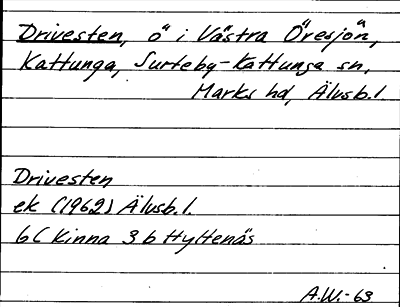 Drivesten, ö i Västra Öresjön,
Kattunga, Surteby-Kattunga sn,
Marks hd, Älvsb.l.
Drivesten
ek (1962) Älvsb.l.
6C Kinna 3b Hyltenäs
A.W.-63